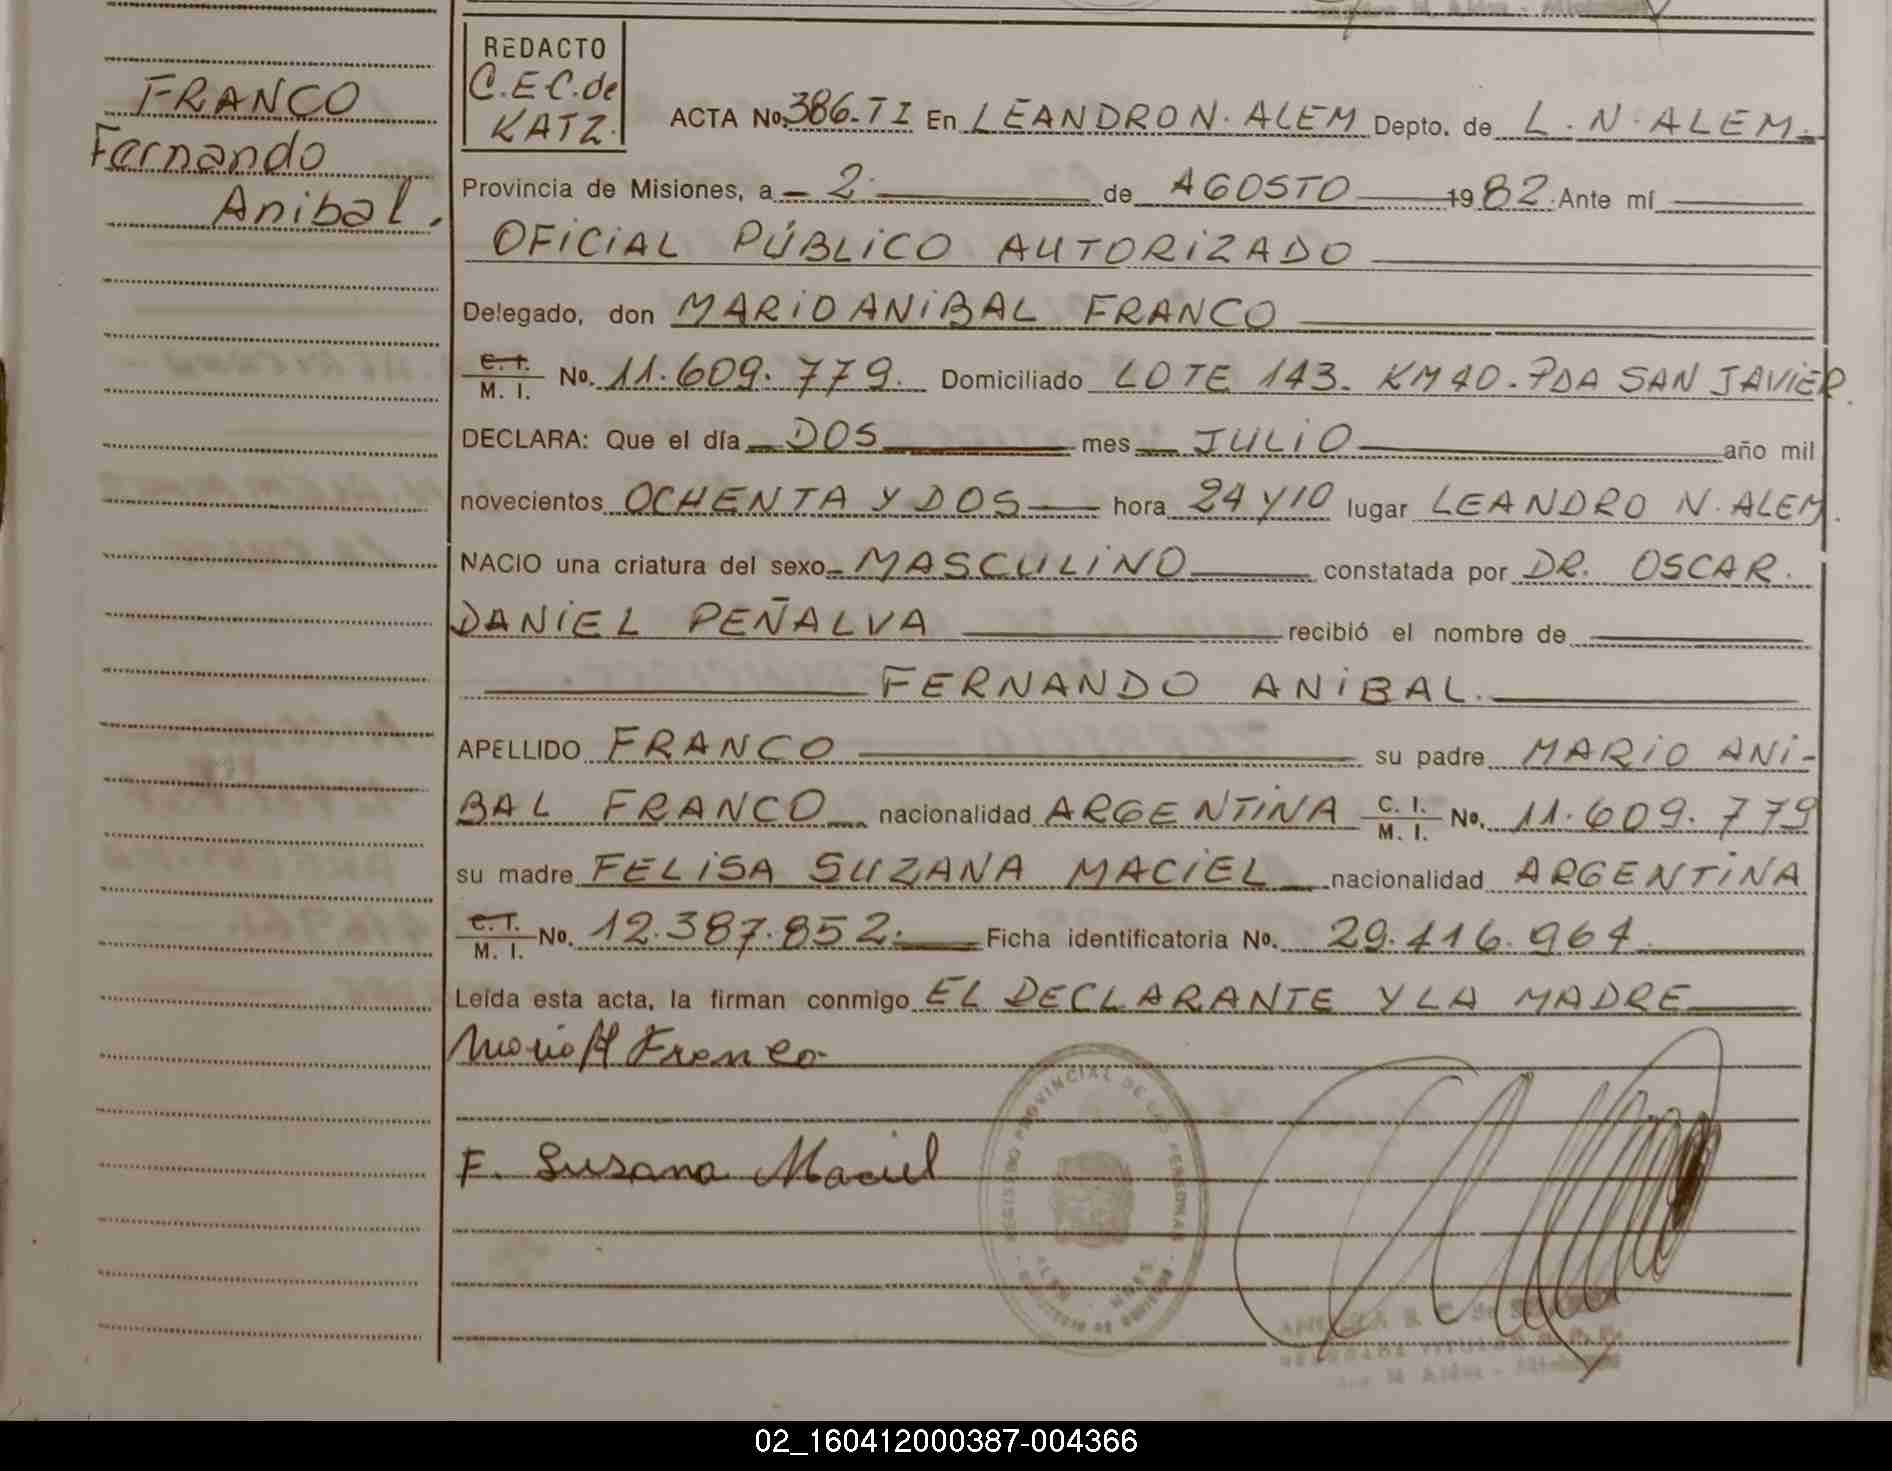 REDACTO
C.E.C. de
KATZ.
FRANCO
Fernando
Anibal.
ACTA No. 386. T I En LEANDRO N. ALEM Depto. de L. N. ALEM.
Provincia de Misiones, a 2 de AGOSTO 1982. Ante mí
OFICIAL PÚBLICO AUTORIZADO
Delegado, don MARIO ANIBAL FRANCO
C. I. M. I. No. 11.609.779. Domiciliado LOTE 143. KM 40. PDA SAN JAVIER.
DECLARA: Que el día DOS mes JULIO año mil
novecientos OCHENTA Y DOS hora 24 y 10 lugar LEANDRO N. ALEM.
NACIO una criatura del sexo MASCULINO constatada por DR. OSCAR.
DANIEL PEÑALVA recibió el nombre de
FERNANDO ANIBAL.
APELLIDO FRANCO su padre MARIO ANI-
BAL FRANCO nacionalidad ARGENTINA C. I. M. I. No. 11.609.779
su madre FELISA SUZANA MACIEL nacionalidad ARGENTINA
C. I. M. I. No. 12.387.852. Ficha identificatoria No. 29.416.964.
Leída esta acta, la firman conmigo EL DECLARANTE Y LA MADRE
Mario A Franco
F. Susana Maciel
REGISTRO PROVINCIAL DE LAS PERSONAS
02_160412000387-004366